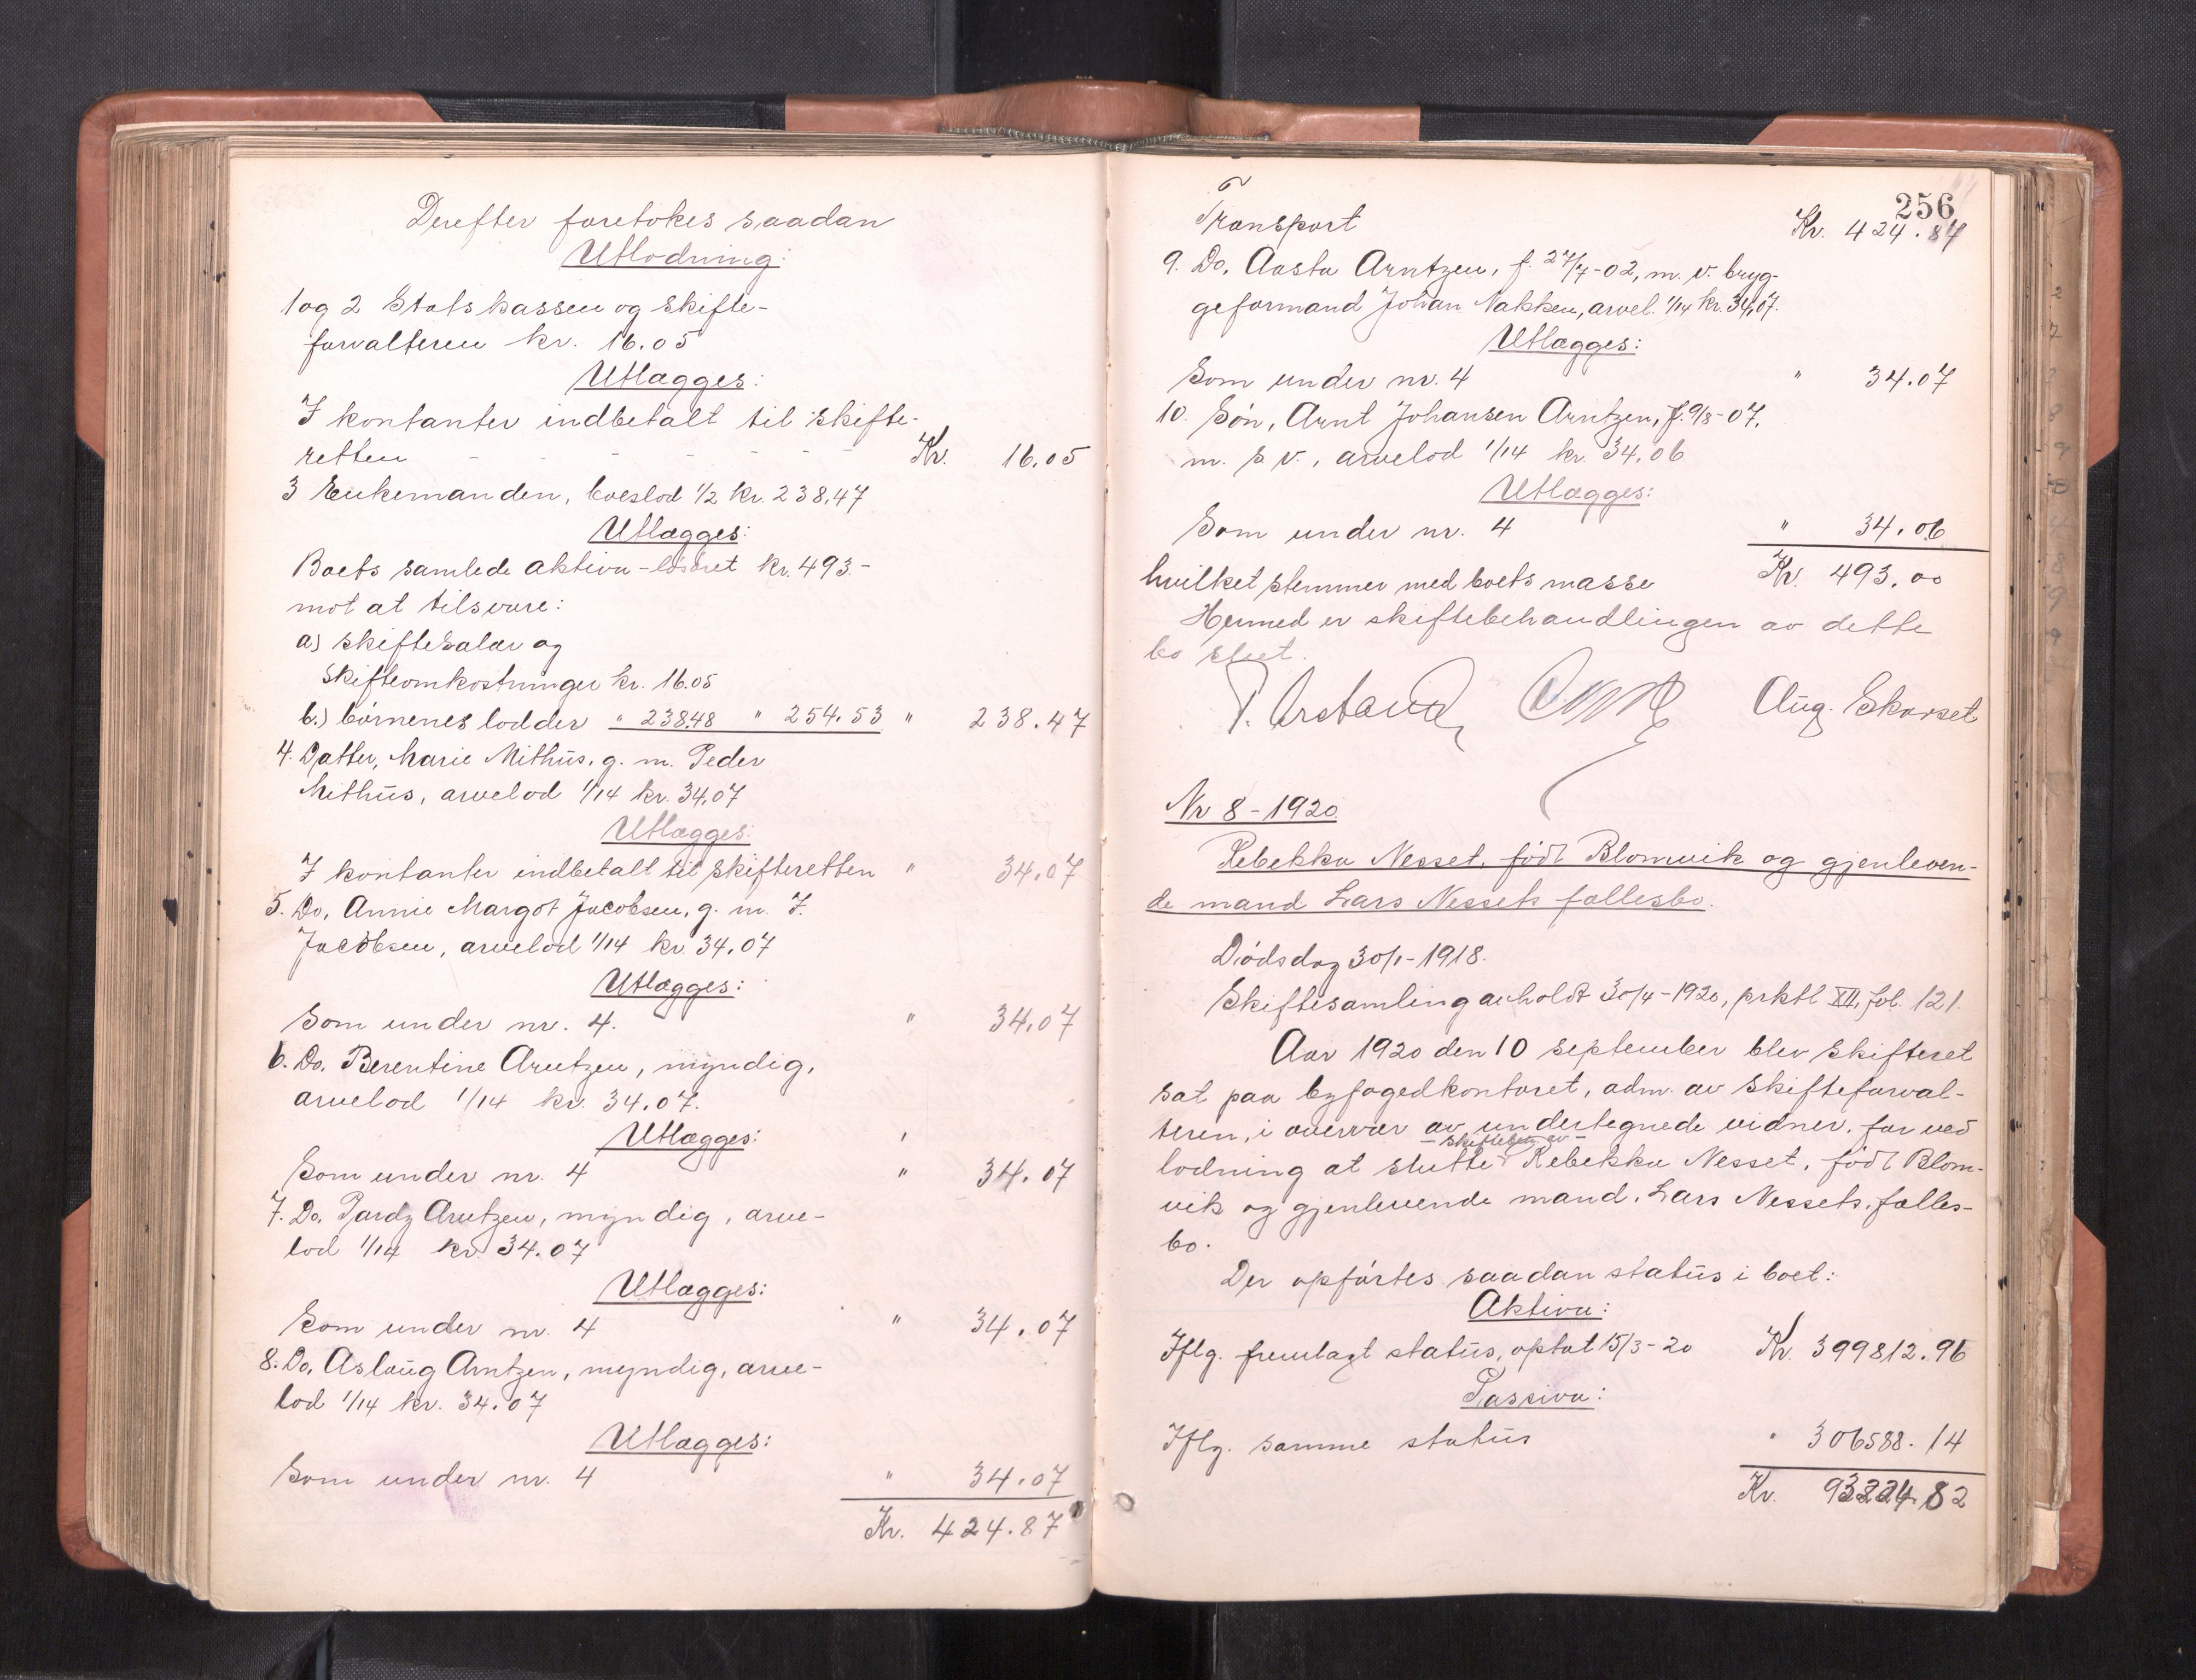 Derefter foretokes saadan
Utlodning:
1 og 2 Statskassen og skifte-
forvalteren kr. 16.05
Utlægges:
I kontanter indbetalt til skifte-
retten - - - - - - Kr. 16.05
3 Enkemanden, boeslod 1/2 kr. 238,47
Utlægges:
Boets samlede aktiva - løsøret kr. 493.-
mot at tilsvare:
a) skiftesalær og
skifteomkostninger kr. 16.05
b.) børnenes lodder " 238.48 " 254.53 " 238.47
4. Datter, Marie Mithus, g. m. Peder
Mithus, arvelod 1/14 kr. 34,07
Utlægges:
I kontanter indbetalt til skifteretten " 34.07
5. Do, Annie Margot Jacobsen, g. m. J.
Jacobsen, arvelod 1/14 kr. 34.07
Utlægges:
Som under nr. 4. " 34,07
6. Do. Berentine Arntzen, myndig,
arvelod 1/14 kr. 34.07.
Utlægges:
Som under nr. 4 " 34.07
7. Do. Pardy Arntzen, myndig, arve-
lod 1/14 kr. 34.07
Utlægges:
Som under nr. 4 " 34.07
8. Do, Aslaug Arntzen, myndig, arve-
lod 1/14 kr. 34.07
Utlægges:
Som under nr. 4 " 34.07
Kr. 424.87
256
Transport Kr. 424.87
9. Do, Aasta Arntzen, f. 27/7-02, m. v. bryg-
geformand Johan Nakken, arvel. 1/14 kr. 34,07.
Utlægges:
Som under nr. 4 " 34.07
10. Søn, Arnt Johansen Arntzen, f. 9/8-07,
m. s. v., arvelod 1/14 kr. 34.06
Utlægges:
Som under nr. 4 " 34.06
hvilket stemmer med boets masse Kr. 493.00
Hermed er skiftebehandlingen av dette
bo sluttet.
Aug. Skarset
Nr 8 - 1920
Rebekka Nesset, født Blomvik og gjenleven-
de mand Lars Nessets fællesbo.
Dødsdag 30/1-1918.
Skiftesamling avholdt 30/4-1920, prktl XII, fol. 121.
Aar 1920 den 10 september blev skifteret
sat paa byfogedkontoret, adm. av skifteforval-
teren, i overvær av undertegnede vidner, for ved
- skiftebeh. av -
lodning at slutte Rebekka Nesset, født Blom-
vik og gjenlevende mand, Lars Nessets, fælles-
bo.
Der opførtes saadan status i boet:
Aktiva:
Iflg. fremlagt status, optat 15/3-20 Kr. 399812.96
Passiva:
Iflg. samme status " 306588.14
Kr. 93224.82